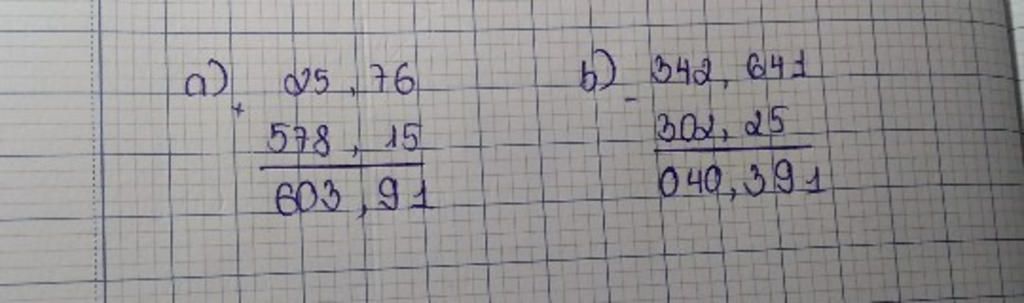 a) 25,76 b) 342,641
+ -
578,15 302,25
603,91 040,391